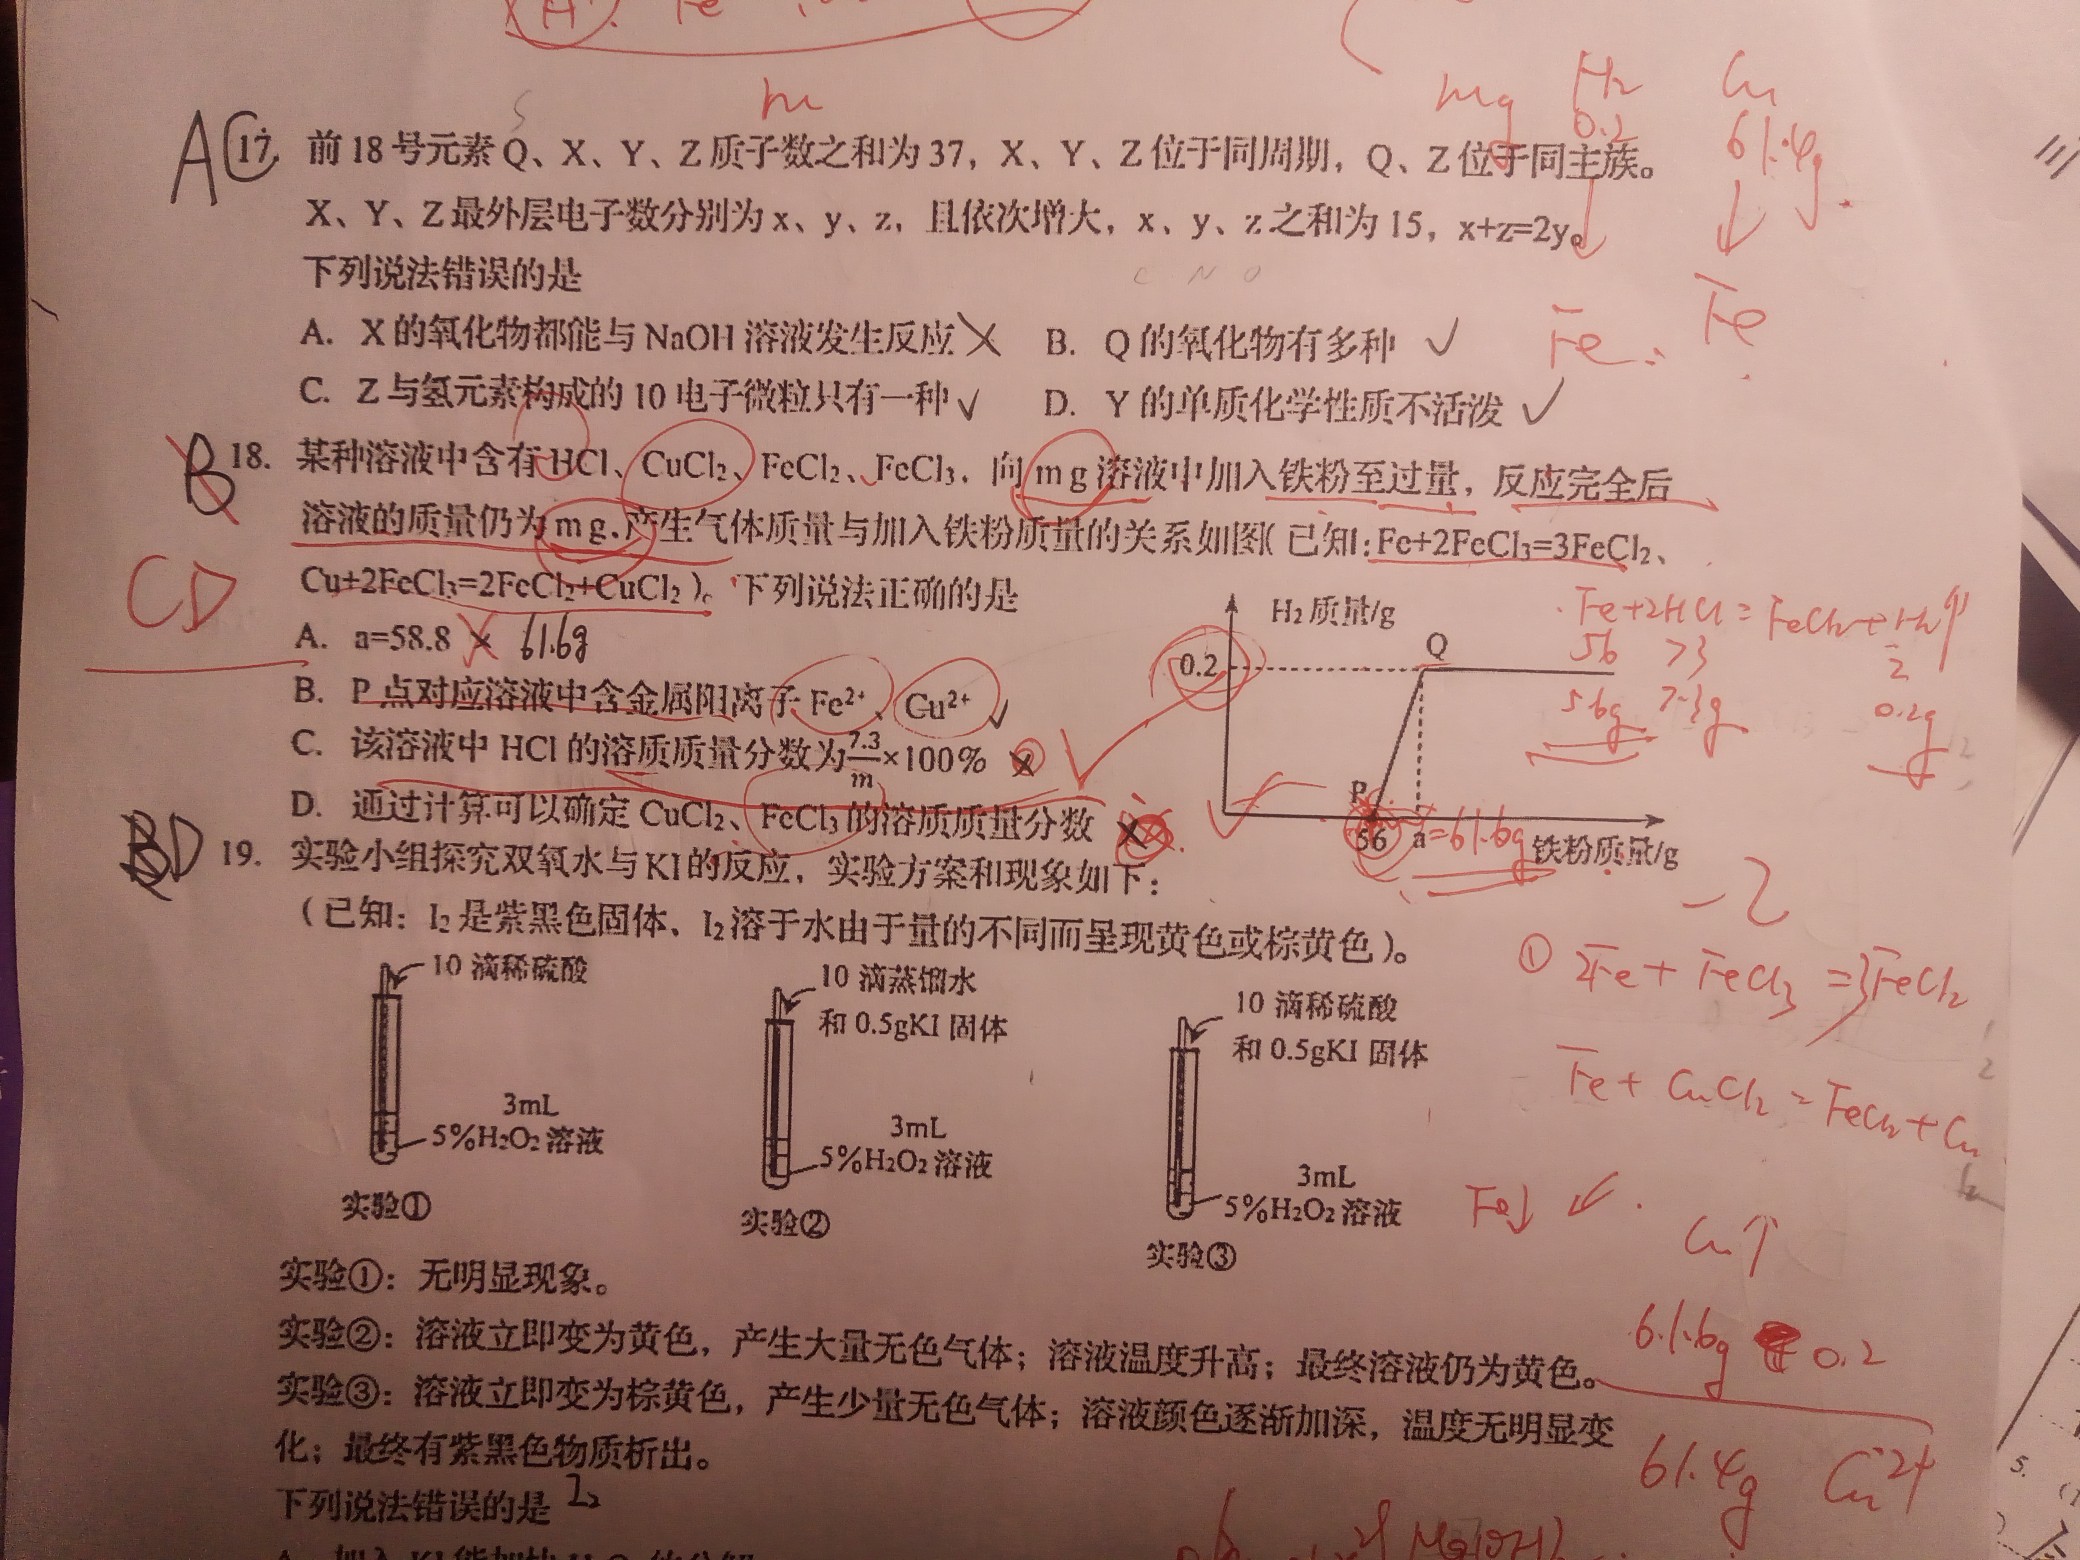 H⁺. Fe
m
mg H₂ Cu
0.2 61.4g
S
AC 17. 前18号元素Q、X、Y、Z质子数之和为37，X、Y、Z位于同周期，Q、Z位于同主族。
X、Y、Z最外层电子数分别为x、y、z，且依次增大，x、y、z之和为15，x+z=2y。
下列说法错误的是
C N O
Fe Fe
A. X的氧化物都能与NaOH溶液发生反应 × B. Q的氧化物有多种 √
C. Z与氢元素构成的10电子微粒只有一种 √ D. Y的单质化学性质不活泼 √
B 18. 某种溶液中含有HCl、CuCl₂、FeCl₂、FeCl₃，向mg溶液中加入铁粉至过量，反应完全后
溶液的质量仍为mg.产生气体质量与加入铁粉质量的关系如图(已知:Fe+2FeCl₃=3FeCl₂、
CD
Cu+2FeCl₃=2FeCl₂+CuCl₂)。下列说法正确的是
A. a=58.8 × 61.6g
B. P点对应溶液中含金属阳离子Fe²⁺、Cu²⁺ √
C. 该溶液中HCl的溶质质量分数为7.3/m×100% × √
D. 通过计算可以确定CuCl₂、FeCl₃的溶质质量分数 × √
H₂质量/g
0.2
Q
P
56 a=61.6g 铁粉质量/g
Fe+2HCl=FeCl₂+H₂↑
56 73 2
5.6g 7.3g 0.2g
-2
BD 19. 实验小组探究双氧水与KI的反应，实验方案和现象如下：
（已知：I₂是紫黑色固体、I₂溶于水由于量的不同而呈现黄色或棕黄色）。
① 2Fe+FeCl₃=3FeCl₂
Fe+CuCl₂=FeCl₂+Cu
Fe↓
Cu↑
10滴稀硫酸
3mL
5%H₂O₂溶液
实验①
10滴蒸馏水
和0.5gKI固体
3mL
5%H₂O₂溶液
实验②
10滴稀硫酸
和0.5gKI固体
3mL
5%H₂O₂溶液
实验③
实验①：无明显现象。
实验②：溶液立即变为黄色，产生大量无色气体；溶液温度升高；最终溶液仍为黄色。
实验③：溶液立即变为棕黄色，产生少量无色气体；溶液颜色逐渐加深，温度无明显变
化；最终有紫黑色物质析出。
下列说法错误的是 I₂
61.6g 0.2
61.4g Cu²⁺
5.